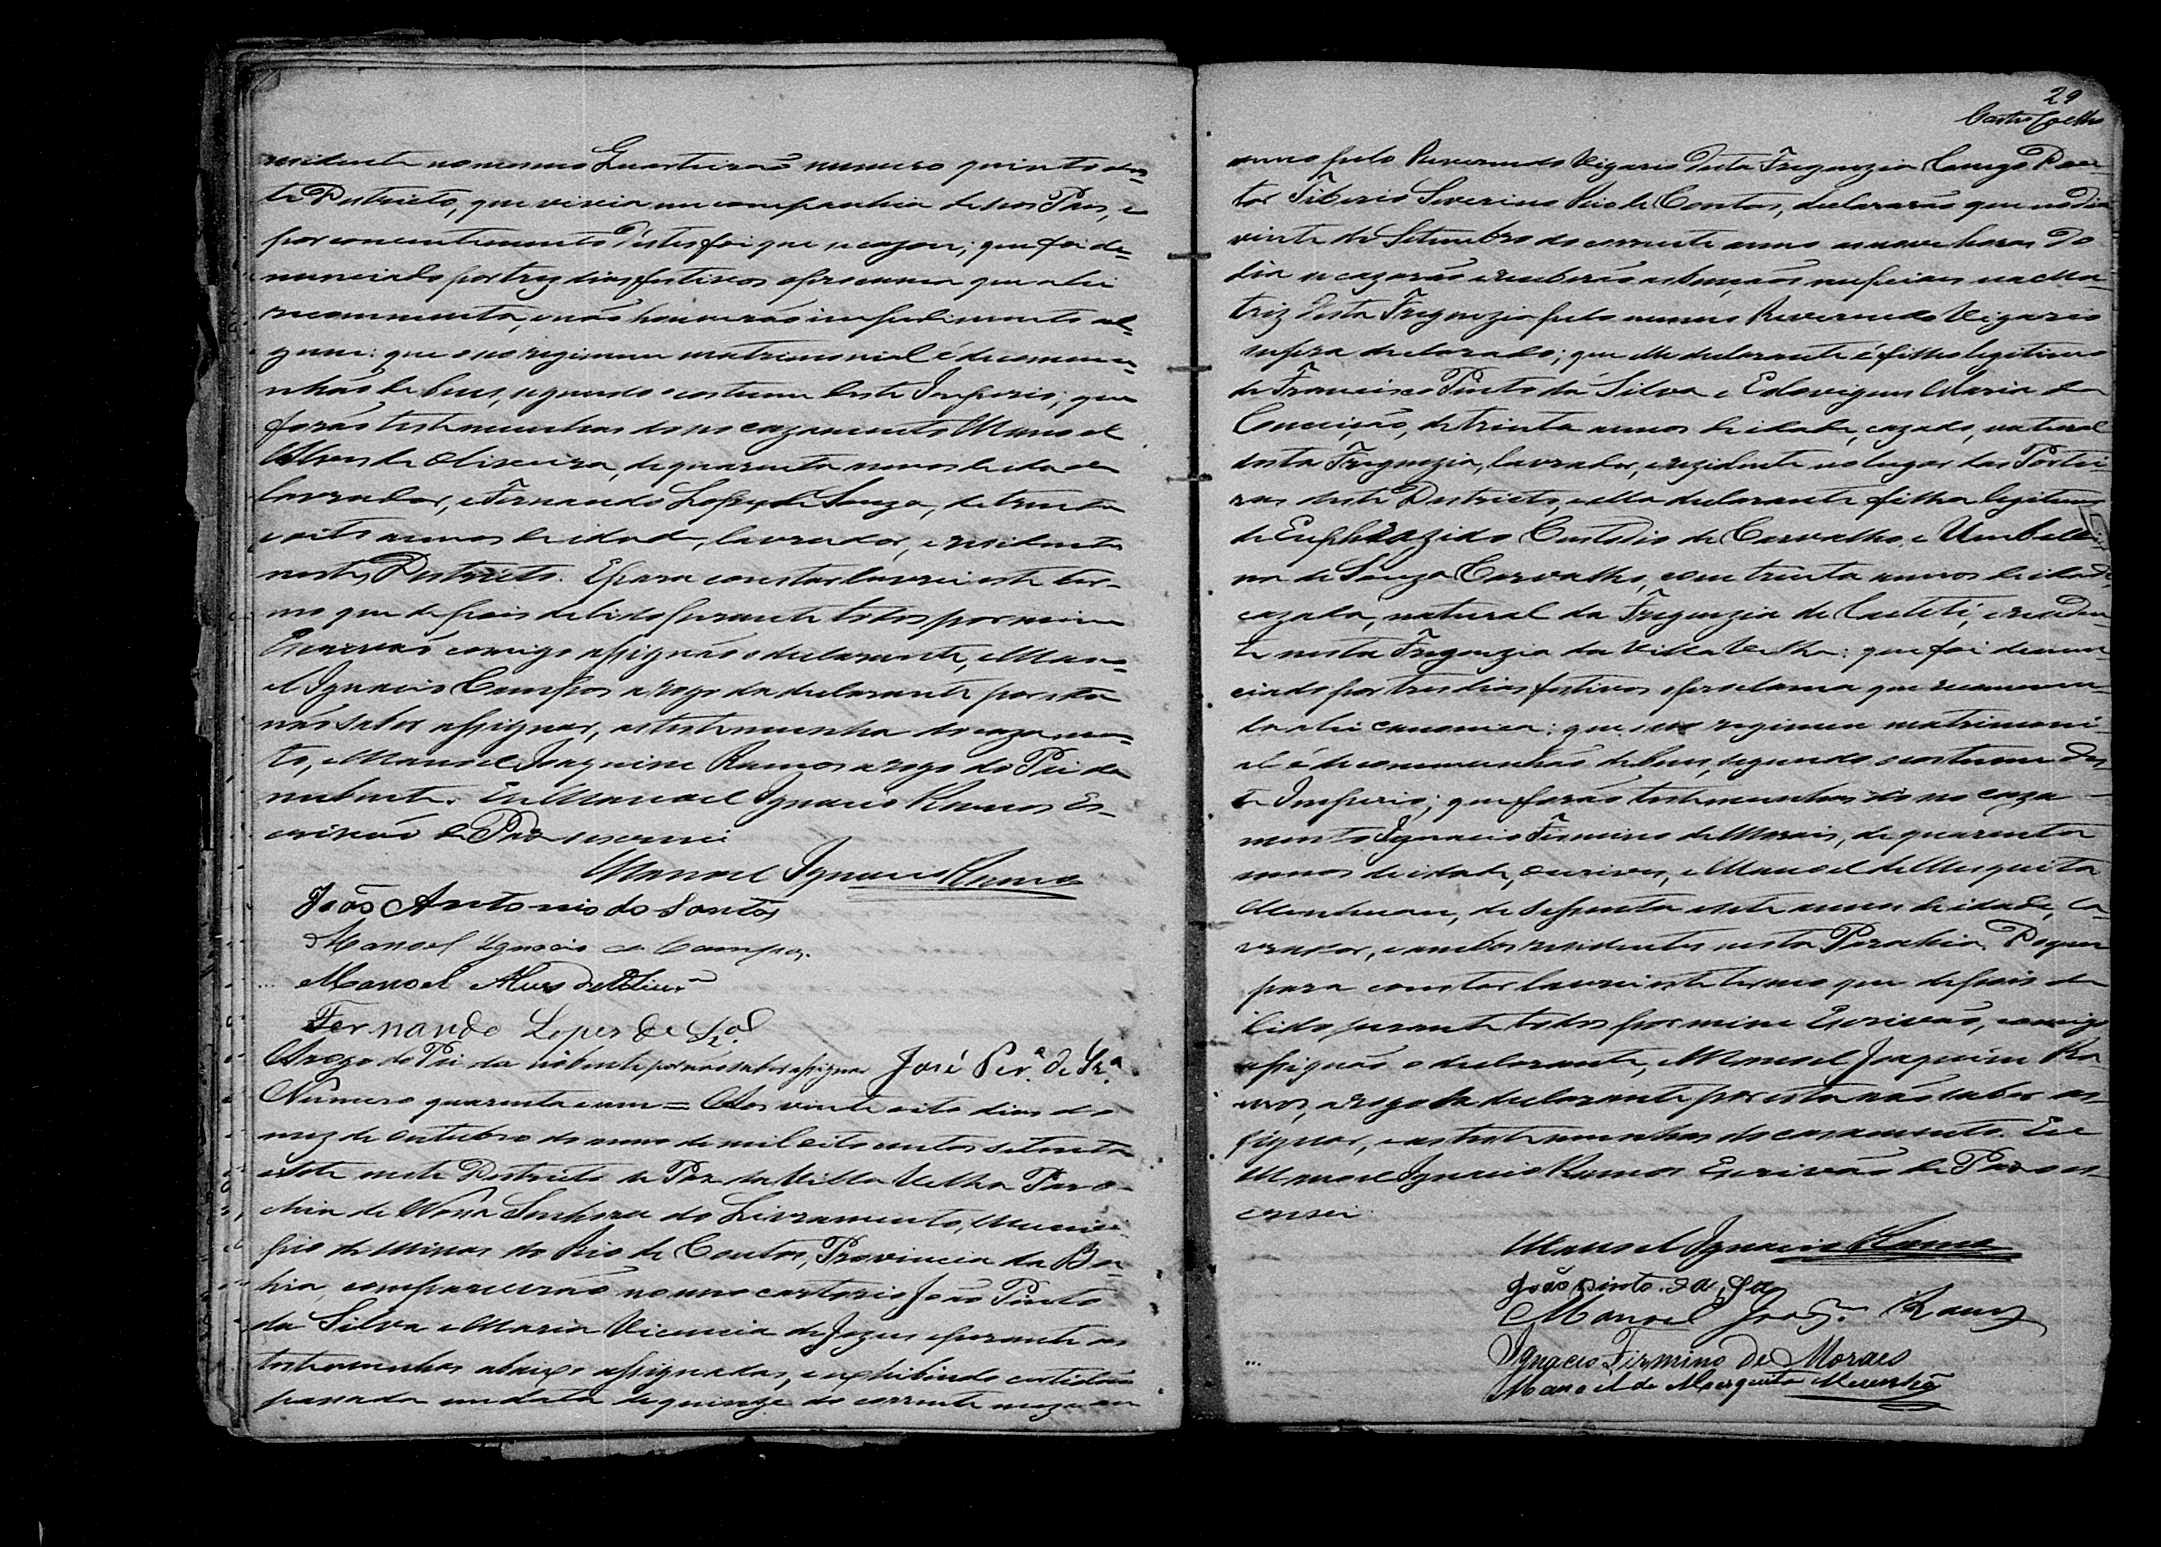 residente no mesmo Quarteirão numero quinto des=
te Destricto, que vivia em companhia de seos Pais, e
por concentimento d'estes foi que se cazou; que foi de=
nunciado por trez dias festivos o proclama que a lei
recommenda, e não houverão impedimento al=
gum: que o seo regimen matrimonial é de commu=
nhão de bens, segundo o costume deste Imperio; que
forão testemunhas do seo cazamento Manoel
Alves de Oliveira, de quarenta annos de idade
lavrador, e Fernando Lopes de Souza, de trinta
e oito annos de idade, lavrador, e residentes
neste Destricto. E para constar lavrei este ter-
mo que depois de lido perante todos por mim
Escrivão comigo assignão o declarante, Mano=
el Ignacio Campos a rogo da declarante por ella
não saber assignar, as testemunhas do cazamen=
to, e Manoel Joaquim Ramos a rogo do Pai da
nubente. Eu Manoel Ignacio Ramos Es-
crivão de Paz o escrevi
Manoel Ignacio Ramos
João Antonio do Santos
Manoel Ignacio de Campos.
Manoel Alves de Olivr.ª
Fernando Lopes de Sz.ª
Arogo do Pai da nubente por não saber assignar José Per.ª de Sz.ª
Numero quarenta e um = Aos vinte oito dias do
mez de Outubro do anno de mil oito centos setenta
e sete neste Destricto de Paz da Villa Velha Paro-
chia de Nossa Senhora do Livramento, Munici=
pio de Minas do Rio de Contas, Provincia da Ba=
hia, comparecerão no meo cartorio João Pinto
da Silva e Maria Vicencia de Jezus e perante as
testemunhas abaixo assignadas, e exhibindo certidão
passada em data de quinze do corrente mez e
29
Castro Coelho
anno pelo Reverendo Vigario desta Freguezia Conego Dou-
tor Tiberio Severino Rio de Contas, declararão que no dia
vinte de Setembro do corrente anno as nove horas do
dia se cazarão e receberão as bençãos nupciaes na Ma-
triz desta Freguezia pelo mesmo Reverendo Vigario
supra declarado; que elle declarante é filho legitimo
de Francisco Pinto da Silva e Edovigem Maria da
Conceição, de trinta annos de idade, cazado, natural
desta Freguezia, lavrador, e rezidente no lugar das Portei-
ras deste Destricto, e ella declarante filha legitima
de Euphrazido Custodio de Carvalho, e Umbeli-
na de Souza Carvalho, com trinta annos de idade
cazada, natural da Freguezia de Caeteté, e reziden-
te nesta Freguezia da Villa Velha: que foi denun-
ciado por tres dias festivos o proclama que recommen-
da a lei canonica: que seu regimen matrimoni-
al é de communhão de bens, segundo o costume des-
te Imperio; que forão testemunhas do seo caza-
mento Ignacio Firmino de Morais, de quarenta
annos de idade, ourives, e Manoel de Mesquita
de sessenta e sete annos de idade, la-
vrador, e ambos residentes nesta Parochia. Do que
para constar lavrei este termo que depois de
lido perante todos por mim Escrivão, comigo
assignão o declarante, Manoel Joaquim Ra-
mos, a rogo da declarante por esta não saber as-
signar, e as testemunhas do casamento. Eu
Manoel Ignacio Ramos Escrivão de Paz o es-
crevi
Manoel Ignacio Ramos
João Pinto da S.ª
Manoel Joaq.m Ramos
Ignacio Firmino de Moraes
Manoel de Mesquita